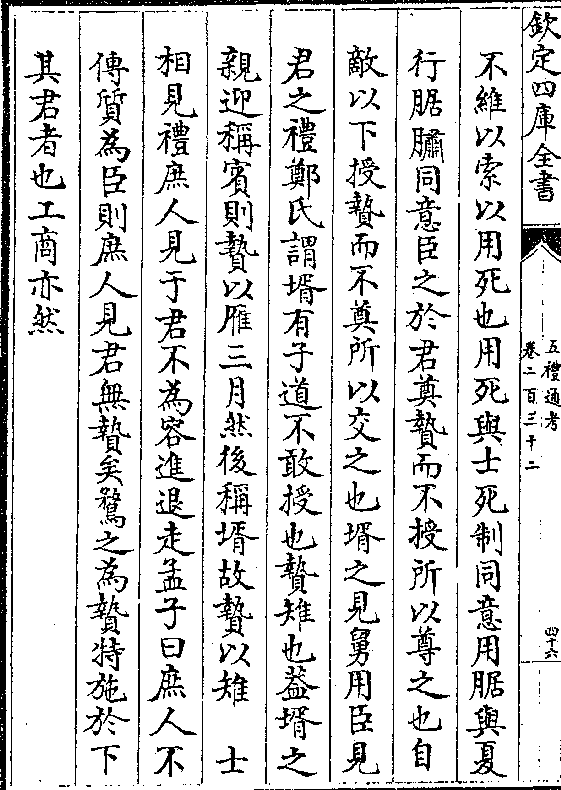 欽定四庫全書
五禮通考
卷二百三十二
四十六
不維以索以用死也用死與士死制同意用腒與夏
行腒鱐同意臣之於君奠贄而不授所以尊之也自
敵以下授贄而不奠所以交之也壻之見舅用臣見
君之禮鄭氏謂壻有子道不敢授也贄雉也葢壻之
親迎稱賓則贄以雁三月然後稱壻故贄以雉 士
相見禮庶人見于君不為容進退走孟子曰庶人不
傳質為臣則庶人見君無贄矣鶩之為贄特施於下
其君者也工商亦然